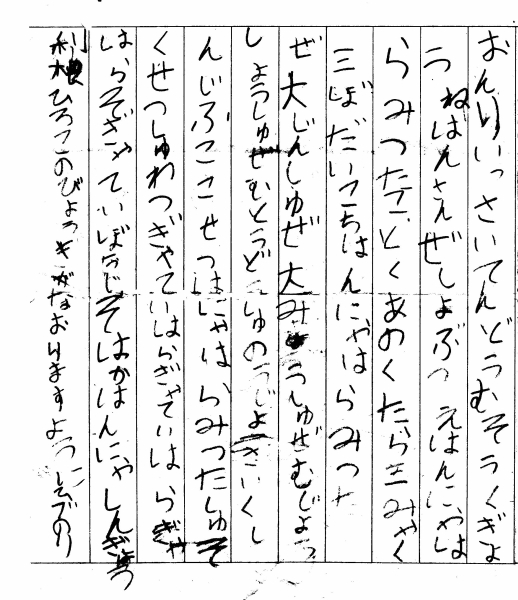 おんりいっさいてんどうむそうくぎょ
うねはんさんぜしょぶつえはんにゃは
らみつたことくあのくたら三みゃく
三ぼだいこちはんにゃはらみつた
ぜ大じんしゅぜ大みょうしゅぜむじょう
しょうしゅぜむとうどうしゅのうじょさいくし
んじふここせつはにゃはらみつたしゅそ
くせつしゅわつぎゃていはらぎゃていはらぎゃ
はらそぎゃていぼうじそはかはんにゃしんぎょう
利根ひろこのびょうきがなおりますように